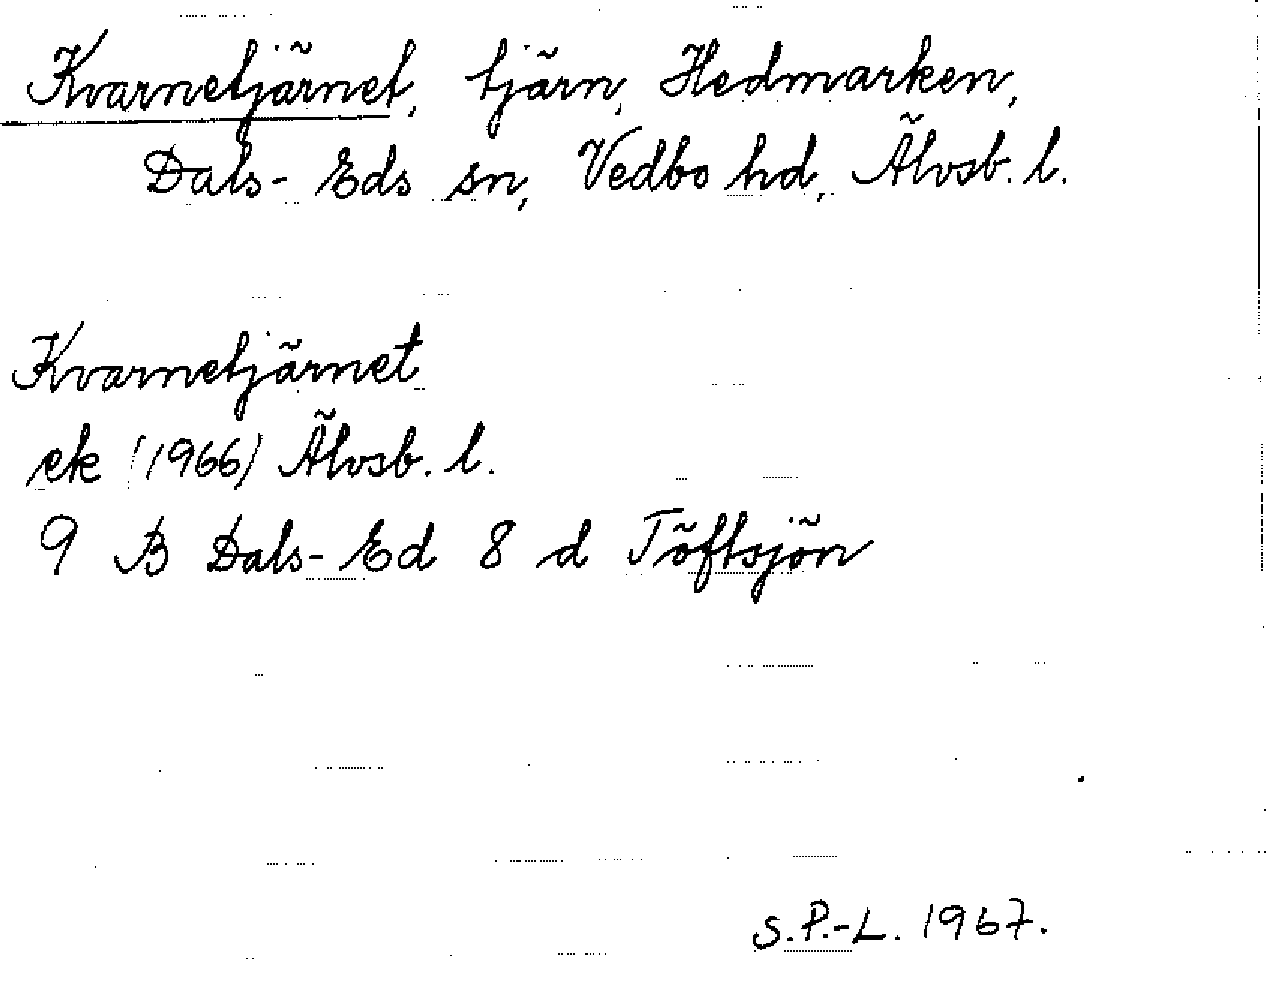 Kvarnetjärnet, tjärn, Hedmarken,
Dals-Eds sn, Vedbo hd, Älvsb. l.
Kvarnetjärnet
ek (1966) Älvsb. l.
9 B Dals-Ed 8 d Töftsjön
S.P.-L. 1967.